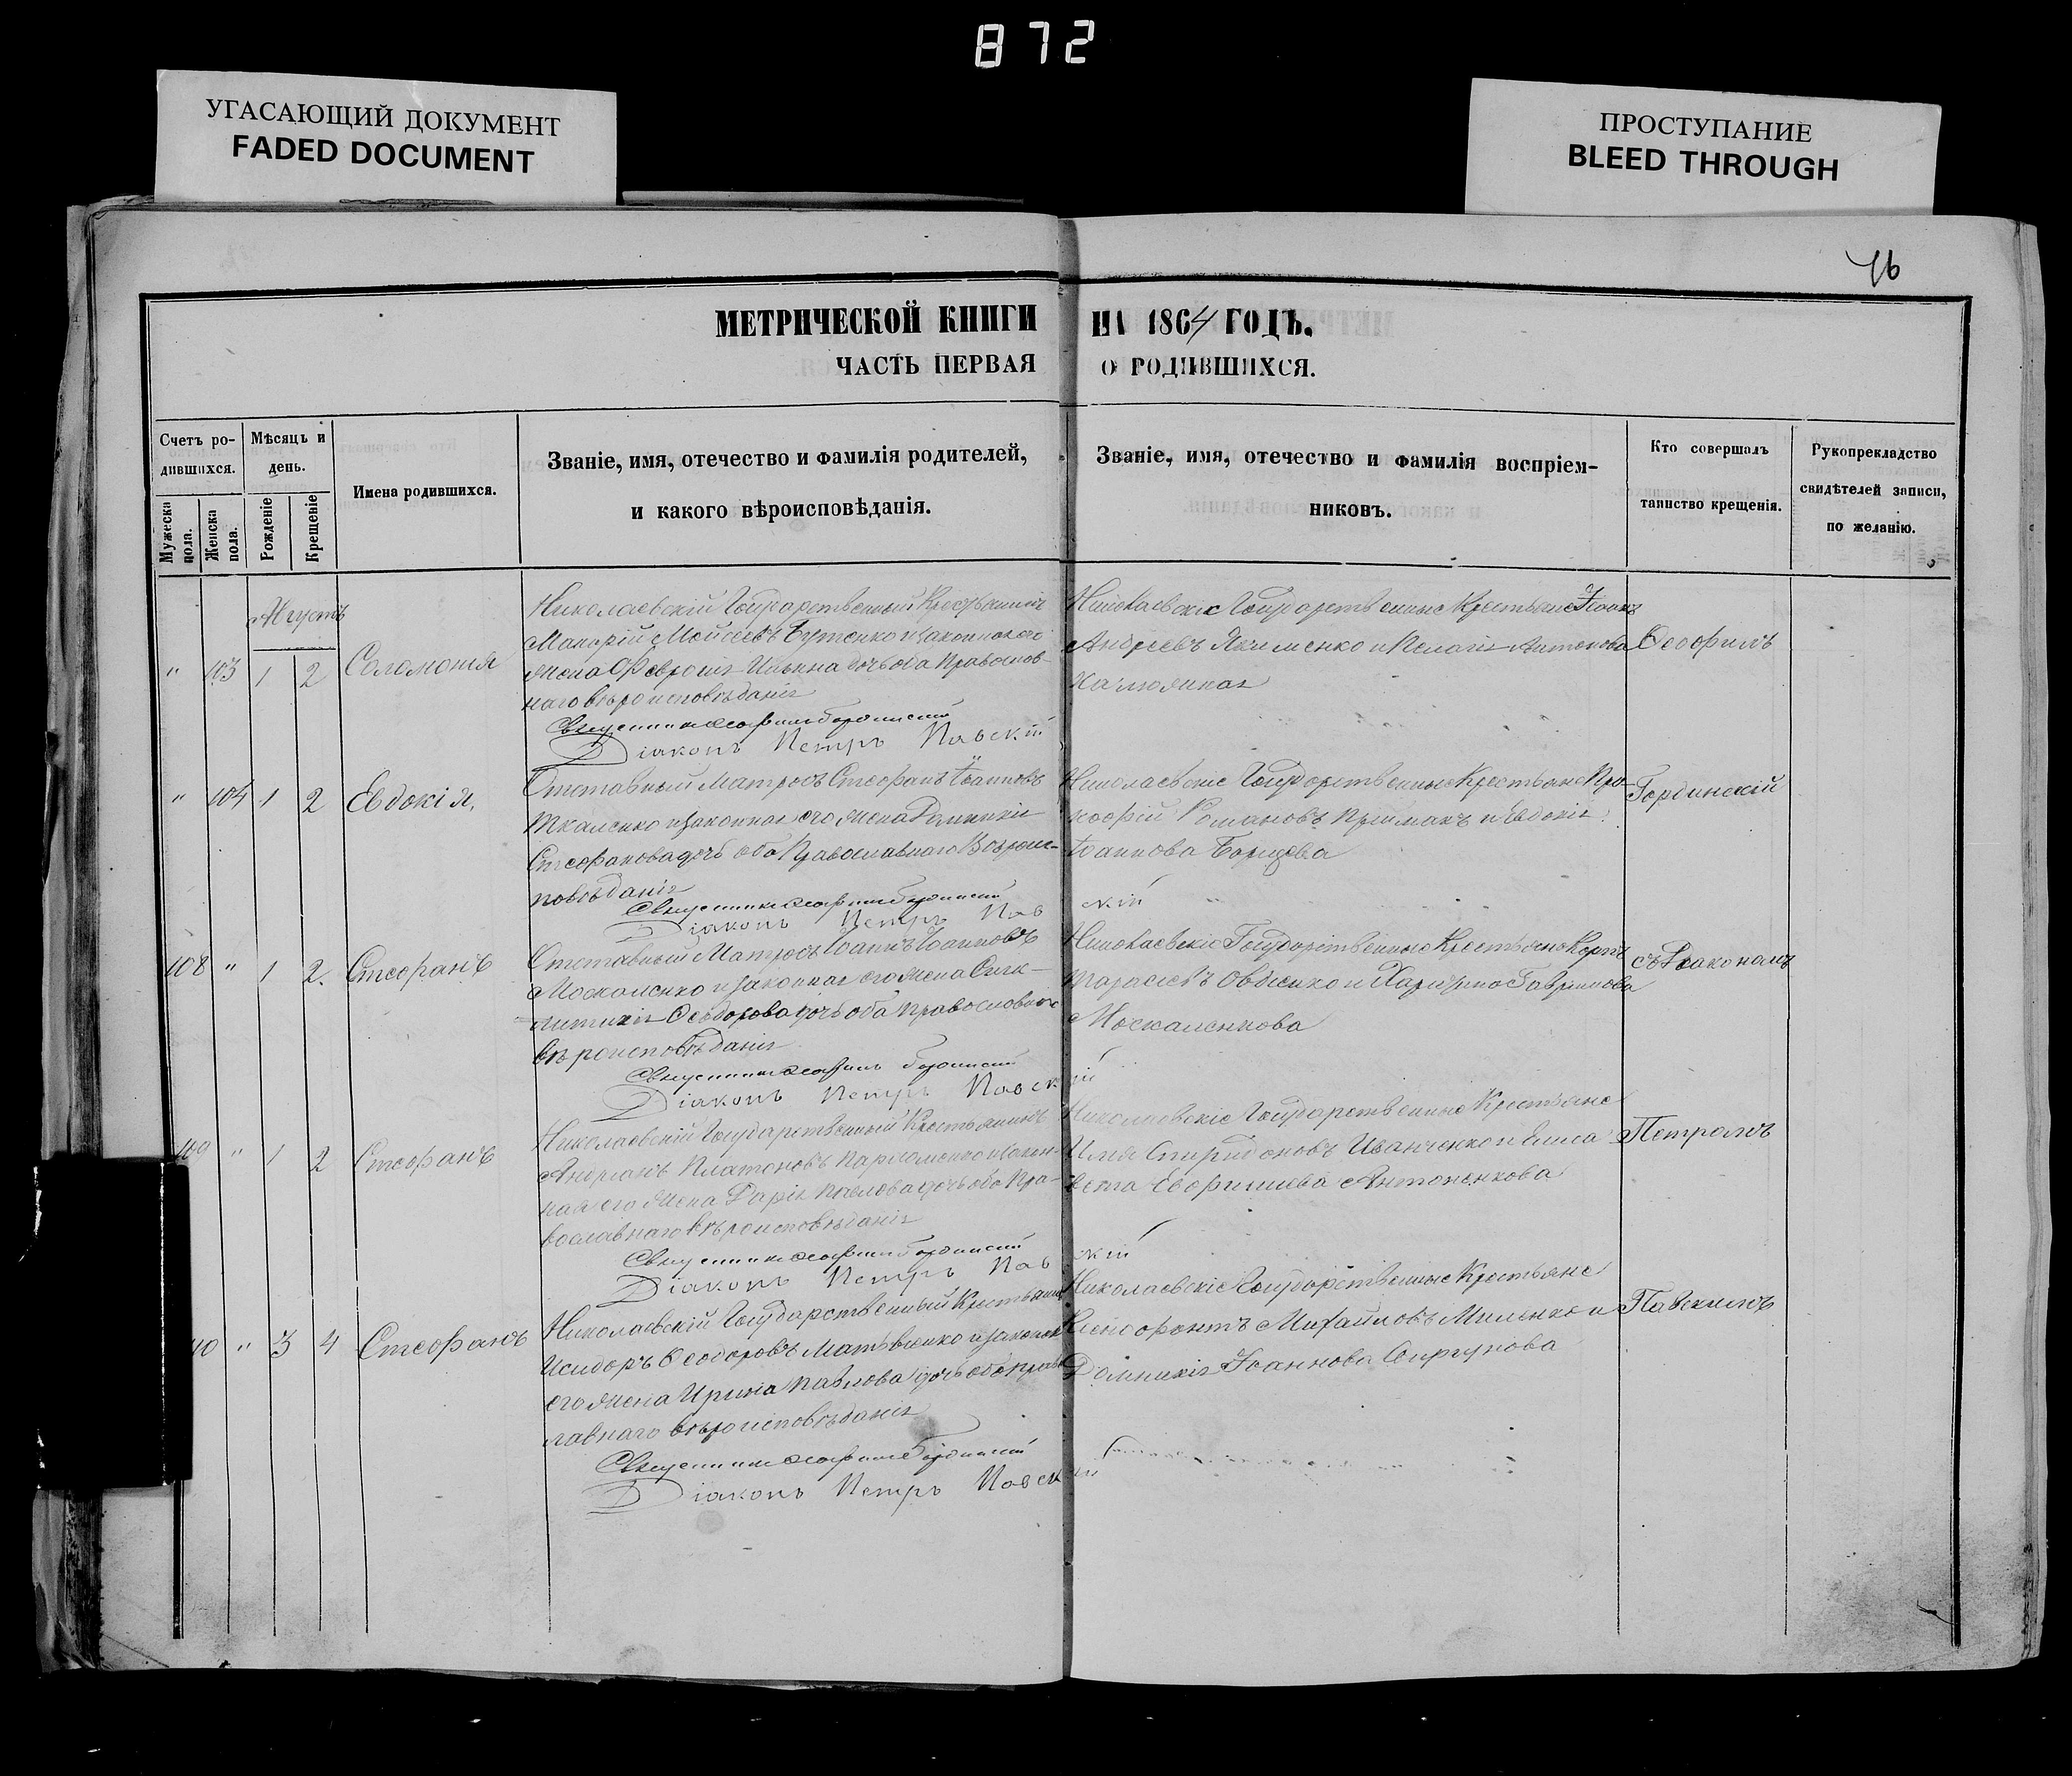 872
УГАСАЮЩИЙ ДОКУМЕНТ
FADED DOCUMENT
ПРОСТУПАНИЕ
BLEED THROUGH
76
МЕТРИЧЕСКОЙ КНИГИ НА 1864 ГОДЪ.
ЧАСТЬ ПЕРВАЯ О РОДИВШИХСЯ.
Счетъ ро-
дившихся.
Мужеска пола.
Женска пола.
Мѣсяцъ и
день.
Рожденіе
Крещеніе
Имена родившихся.
Званіе, имя, отечество и фамилія родителей,
и какого вѣроисповѣданія.
Званіе, имя, отечество и фамилія воспріем-
никовъ.
Кто совершалъ
таинство крещенія.
Рукоприкладство
свидѣтелей записи,
по желанію.
Августъ
" 103 1 2 Соломонія
Николаевскій Государственный Крестьянинъ
Макарій Моисеевъ Бутенко и законная его
жена Феврошя Ильина дочь оба Православ-
наго вѣроисповѣданія
Священникъ Феофилъ Гординскій
Діаконъ Петръ Павскій
Николаевскіе Государственные Крестьяне Іоаннъ
Андреевъ Якименко и Пелагія Антонова
Калюжная
Ѳеофилъ
" 104 1 2 Евдокія,
Отставный Матросъ Стефанъ Іоанновъ
Ткаленко и законная его жена Домникія
Стефанова дочь оба Православнаго Вѣроис-
повѣданія
Священникъ Феофилъ Гординскій
Діаконъ Петръ Павскій
Николаевскіе Государственные Крестьяне Про-
кофій Романовъ Приймакъ и Евдокія
Іоаннова Борщова
Гординскій
108 " 1 2. Стефанъ
Отставный Матросъ Іоаннъ Іоанновъ
Москаленко и законная его жена Синк-
литикія Ѳеодорова дочь оба православнаго
вѣроисповѣданія
Священникъ Феофилъ Гординскій
Діаконъ Петръ Павскій
Николаевскіе Государственные Крестьяне Карпъ
Тарасіевъ Овдіенко и Харитина Гавриилова
Москаленкова
съ Діакономъ
109 " 1 2 Стефанъ
Николаевскій Государственный Крестьянинъ
Андріанъ Платоновъ Пархоменко и закон-
ная его жена Дарія Павлова дочь оба Пра-
вославнаго вѣроисповѣданія
Священникъ Феофилъ Гординскій
Діаконъ Петръ Павскій
Николаевскіе Государственные Крестьяне
Илія Спиридоновъ Иванченко и Елиса-
вета Антоненкова
Петромъ
110 " 3 4 Стефанъ
Николаевскій Государственный Крестьянинъ
Исидоръ Ѳеодоровъ Матвіенко и законная
его жена Ирина Павлова дочь оба Правос-
лавнаго вѣроисповѣданія
Священникъ Феофилъ Гординскій
Діаконъ Петръ Павскій
Николаевскіе Государственные Крестьяне
Ксенофонтъ Михайловъ Миленко и
Домникія Іоаннова
Павскимъ